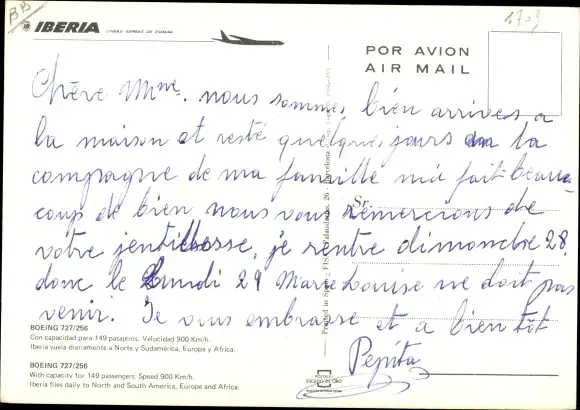 BB
1703
IBERIA LINEAS AEREAS DE ESPAÑA
POR AVION
AIR MAIL
Chère Mme. nous sommes bien arrives a
la maison et resté quelques jours la
compagne de ma famille m'a fait beau
coup de bien nous vous remercions de
votre jentillesse, je rentre dimanche 28
donc le Lundi 29 Marie Louise ne doit pas
venir. Je vous embrasse et a bien tôt
Pepita
Sr.
BOEING 727/256
Con capacidad para 149 pasajeros. Velocidad 900 Km/h.
Iberia vuela diariamente a Norte y Sudamérica, Europa y Africa.
BOEING 727/256
With capacity for 149 passengers. Speed 900 Km/h.
Iberia flies daily to North and South America, Europe and Africa.
Printed in Spain - FISA - 26 - Barcelona
POSTALES
ESCUDO DE ORO